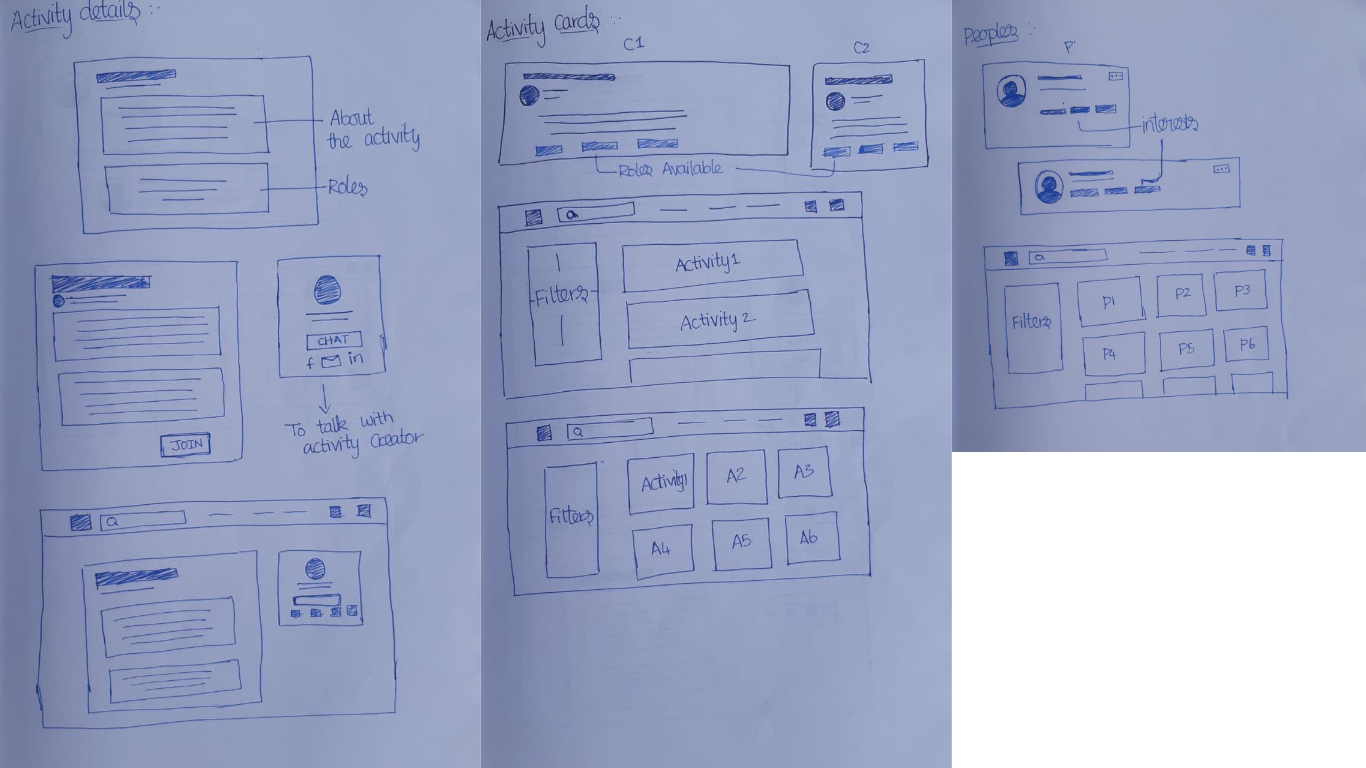 Activity details :-
About
the activity
Roles
CHAT
f in
JOIN
To talk with
activity Creator
Activity Cards :-
C1
C2
Roles Available
Filters
Activity1
Activity 2
Filters
Activity1
A2
A3
A4
A5
A6
Peoples :-
P
interests
Filters
P1
P2
P3
P4
P5
P6